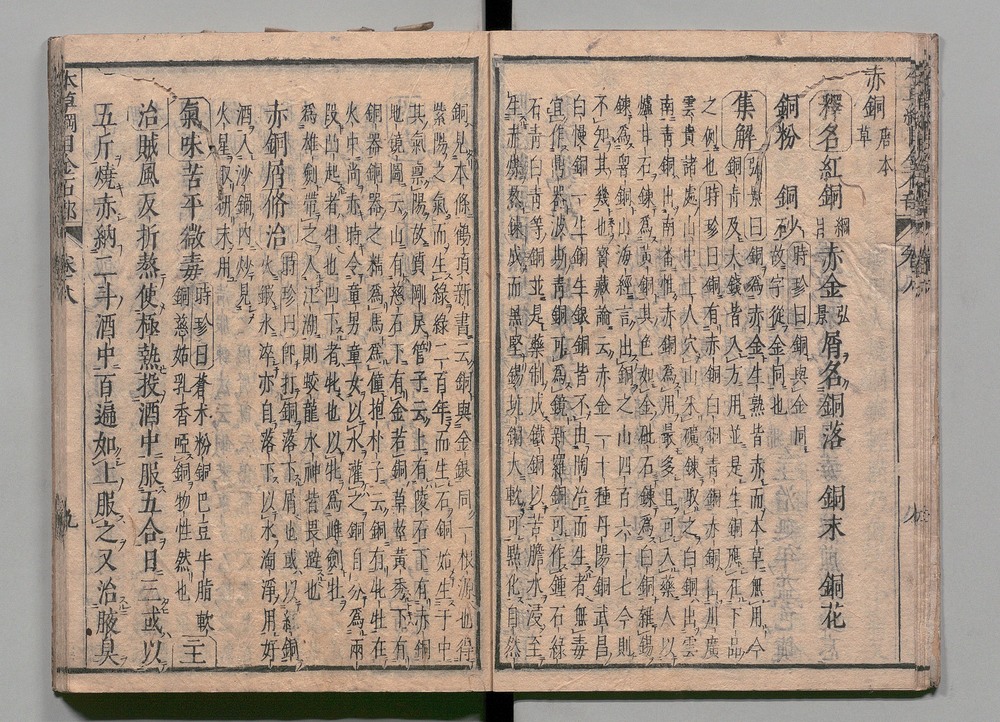 赤銅唐本草
釋名紅銅綱目赤金弘景屑名銅落 銅末 銅花
銅粉 銅砂時珍曰銅與金同故字從金同也
集解弘景曰銅為赤金生熟皆赤而本草無用今
銅青及大錢皆入方用並是生銅應在下品
之例也時珍曰銅有赤銅白銅青銅赤銅出川廣
雲貴諸處山中土人穴山采礦鍊取之白銅出雲
南青銅出南番惟赤銅為用最多且可入藥人以
爐甘石鍊為黃銅其色如金砒石鍊為白銅雜錫
鍊為響銅山海經言出銅之山四百六十七今則
不知其幾也寶藏論云赤金一十種丹陽銅武昌
白慢銅一生銅生銀銅皆不由陶冶而生者無毒
宜作鼎器波斯青銅可為鏡新羅銅可作鍾石綠
石青白青等銅並是藥制成鐵銅以苦膽水浸至
生赤煤熬鍊成而黑堅錫坑銅大軟可點化自然
銅見本條鶴頂新書云銅與金銀同一根源也得
紫陽之氣而生綠綠二百年而生石銅始生于中
其氣稟陽故質剛戾管子云上有陵石下有赤銅
地鏡圖云山有慈石下有金若銅草莖黃秀下有
銅器銅器之精為馬為僮抱朴子云銅有牝牡在
火中尚赤時令童男童女以水灌之銅自分為兩
段凸起者牡也凹下者牝也以牝為雌劍牡
為雄劍帶之入江湖則蛟龍水神皆畏避也
赤銅屑修治時珍曰即打銅落下屑也或以紅銅
火煅水淬亦自落下以水淘淨用好
酒入沙銅內炒見
火星取研末用
氣味苦平微毒時珍曰蒼朮粉銅巴豆牛脂軟
銅慈姑乳香啞銅物性然也主
治賊風反折熬使極熱投酒中服五合日三或以
五斤燒赤納二斗酒中百遍如上服之又治腋臭
本草綱目金石部 卷八 九